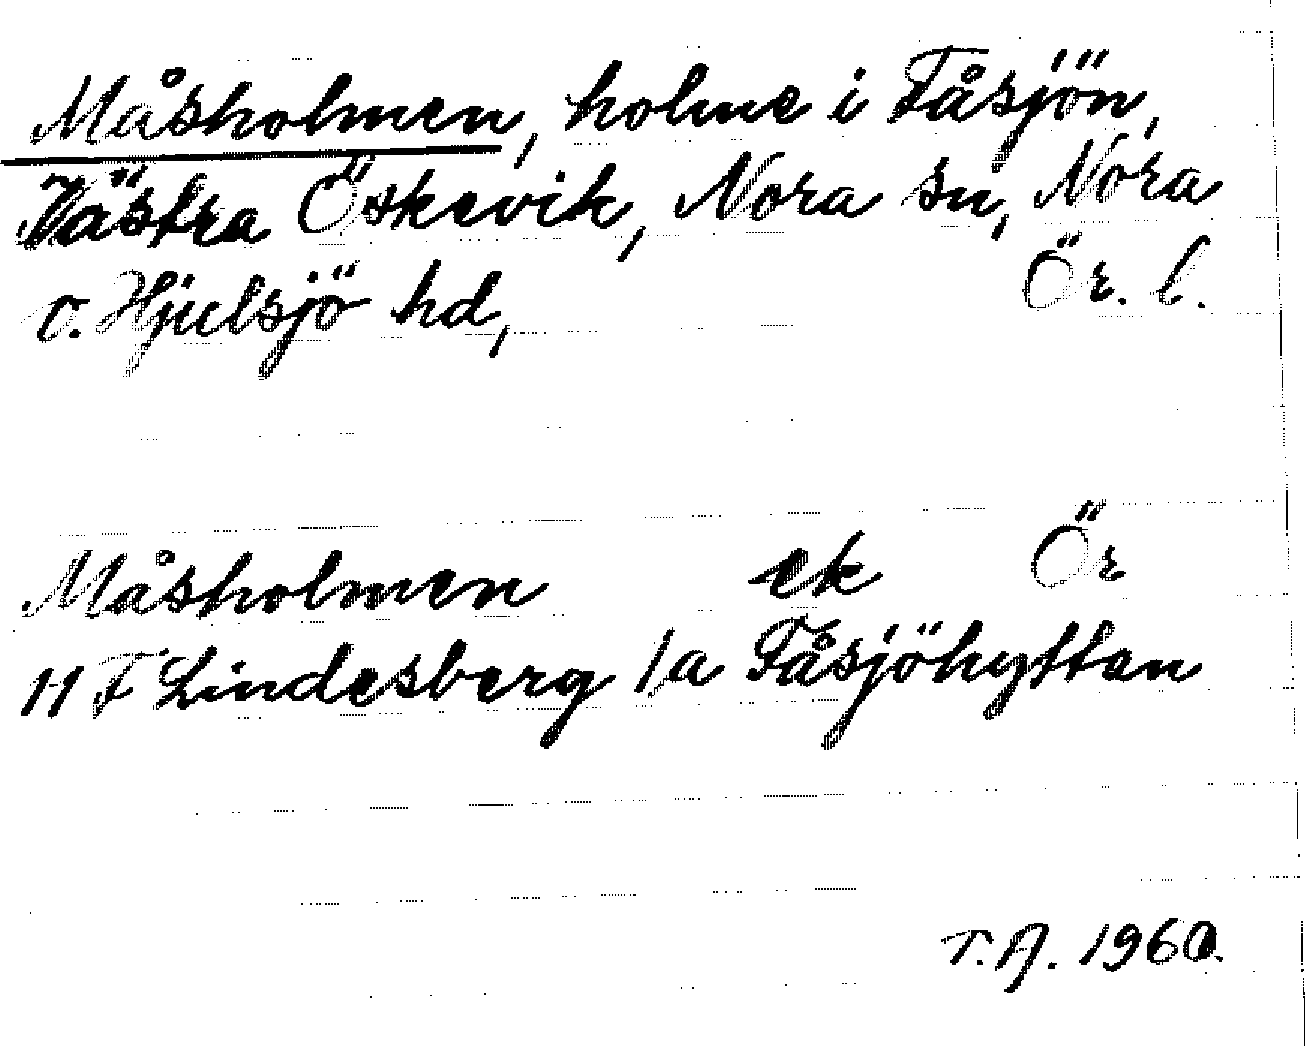 Måsholmen, holme i Fåsjön,
Västra Öskevik, Nora sn, Nora
o. Hjulsjö hd, Ör. l.
Måsholmen ek Ör
11 F Lindesberg 1/a Fåsjöhyttan
T.A. 1960.